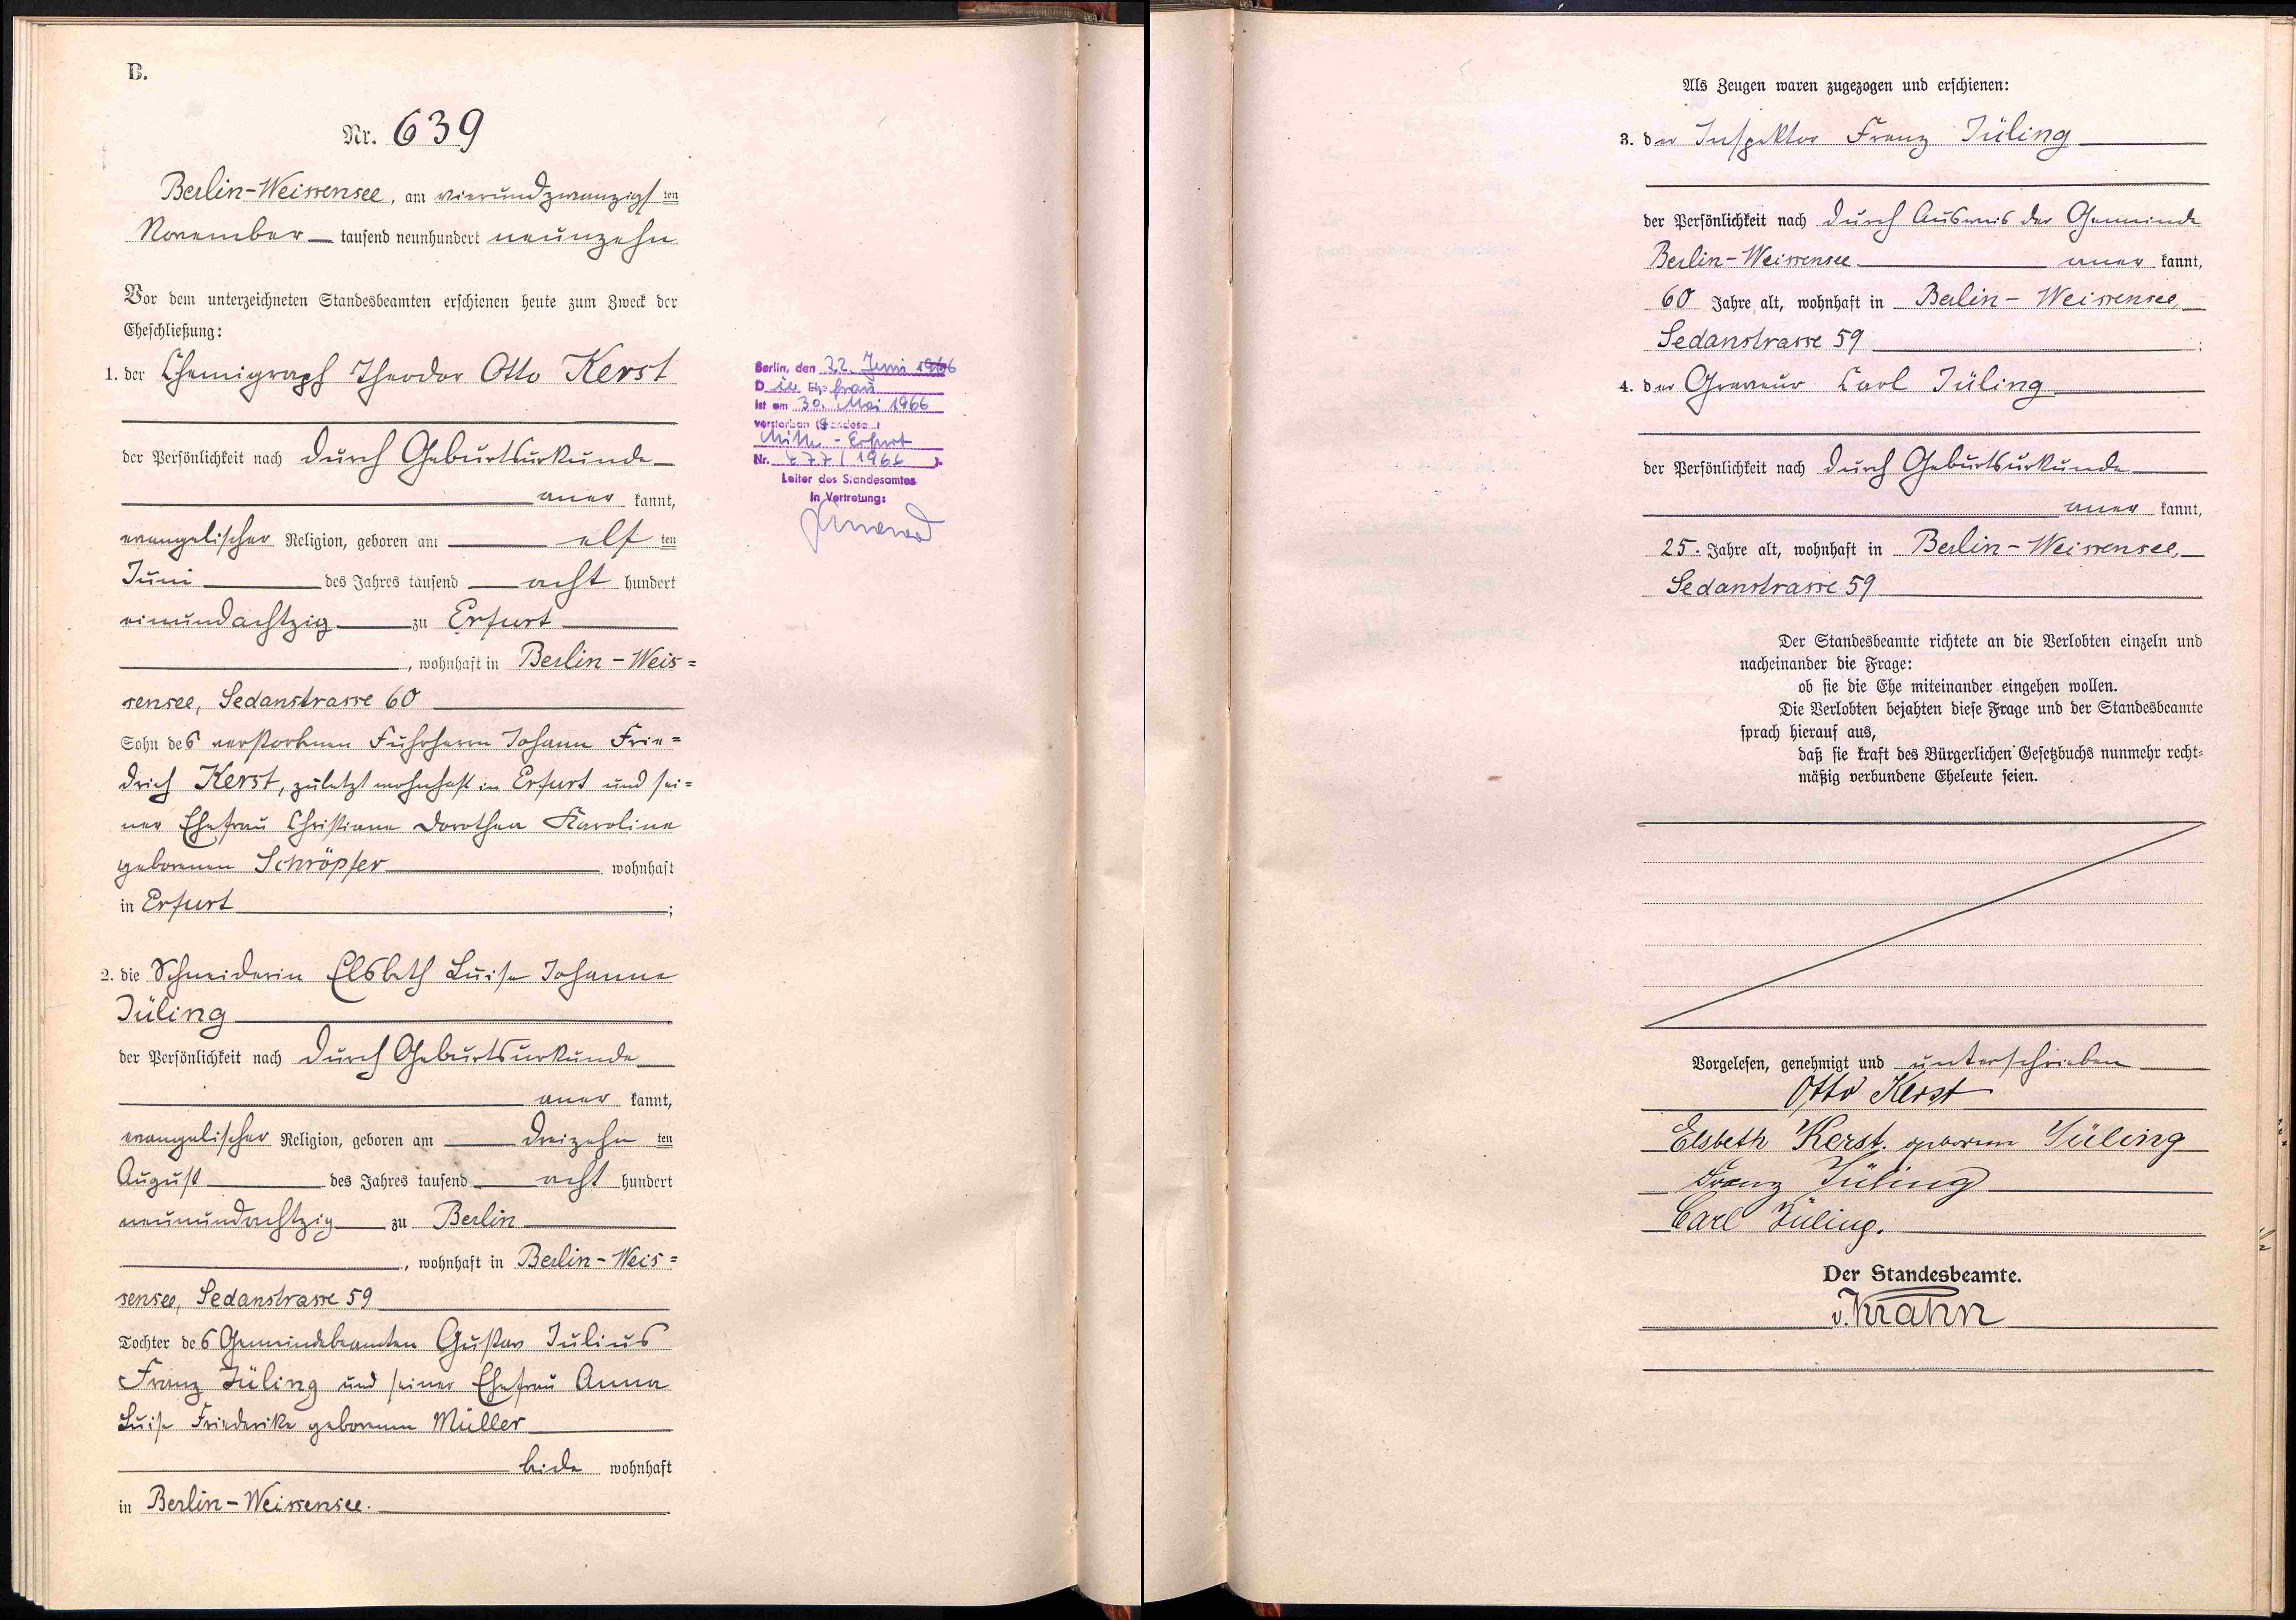 B.
Nr. 639
Berlin-Weissensee, am vierundzwanzigsten
November tausend neunhundert neunzehn
Vor dem unterzeichneten Standesbeamten erschienen heute zum Zweck der
Eheschließung:
1. der Chemigraph Theodor Otto Kerst
der Persönlichkeit nach durch Geburtsurkunde
anerkannt,
evangelischer Religion, geboren am elften
Juni des Jahres tausend achthundert
einundachtzig zu Erfurt
, wohnhaft in Berlin-Weis=
sensee, Sedanstrasse 60
Sohn des verstorbenen Fuhrherrn Johann Frie=
drich Kerst, zuletzt wohnhaft in Erfurt und sei=
ner Ehefrau Christiane Dorothea Karoline
geborenen Schröpfer wohnhaft
in Erfurt ;
2. die Schneiderin Elsbeth Luise Johanne
Jüling
der Persönlichkeit nach durch Geburtsurkunde
anerkannt,
evangelischer Religion, geboren am dreizehnten
August des Jahres tausend achthundert
neunundachtzig zu Berlin
, wohnhaft in Berlin-Weis=
sensee, Sedanstrasse 59
Tochter des Gemeindebeamten Gustav Julius
Franz Jüling und seiner Ehefrau Anna
Luise Friederike geborenen Müller
beide wohnhaft
in Berlin-Weissensee.
Berlin, den 22. Juni 1966
Die Ehefrau
ist am 30. Mai 1966
verstorben (Standesa.:
Mitte - Erfurt
Nr. 477/1966 ).
Leiter des Standesamtes
In Vertretung:
Als Zeugen waren zugezogen und erschienen:
3. der Inspektor Franz Jüling
der Persönlichkeit nach durch Ausweis der Gemeinde
Berlin-Weissensee anerkannt,
60 Jahre alt, wohnhaft in Berlin-Weissensee,
Sedanstrasse 59 ;
4. der Graveur Carl Jüling
der Persönlichkeit nach durch Geburtsurkunde
anerkannt,
25. Jahre alt, wohnhaft in Berlin-Weissensee,
Sedanstrasse 59
Der Standesbeamte richtete an die Verlobten einzeln und
nacheinander die Frage:
ob sie die Ehe miteinander eingehen wollen.
Die Verlobten bejahten diese Frage und der Standesbeamte
sprach hierauf aus,
daß sie kraft des Bürgerlichen Gesetzbuchs nunmehr recht=
mäßig verbundene Eheleute seien.
Vorgelesen, genehmigt und unterschrieben
Otto Kerst
Elsbeth Kerst. geborene Jüling
Franz Jüling
Carl Jüling.
Der Standesbeamte.
v. Krahn